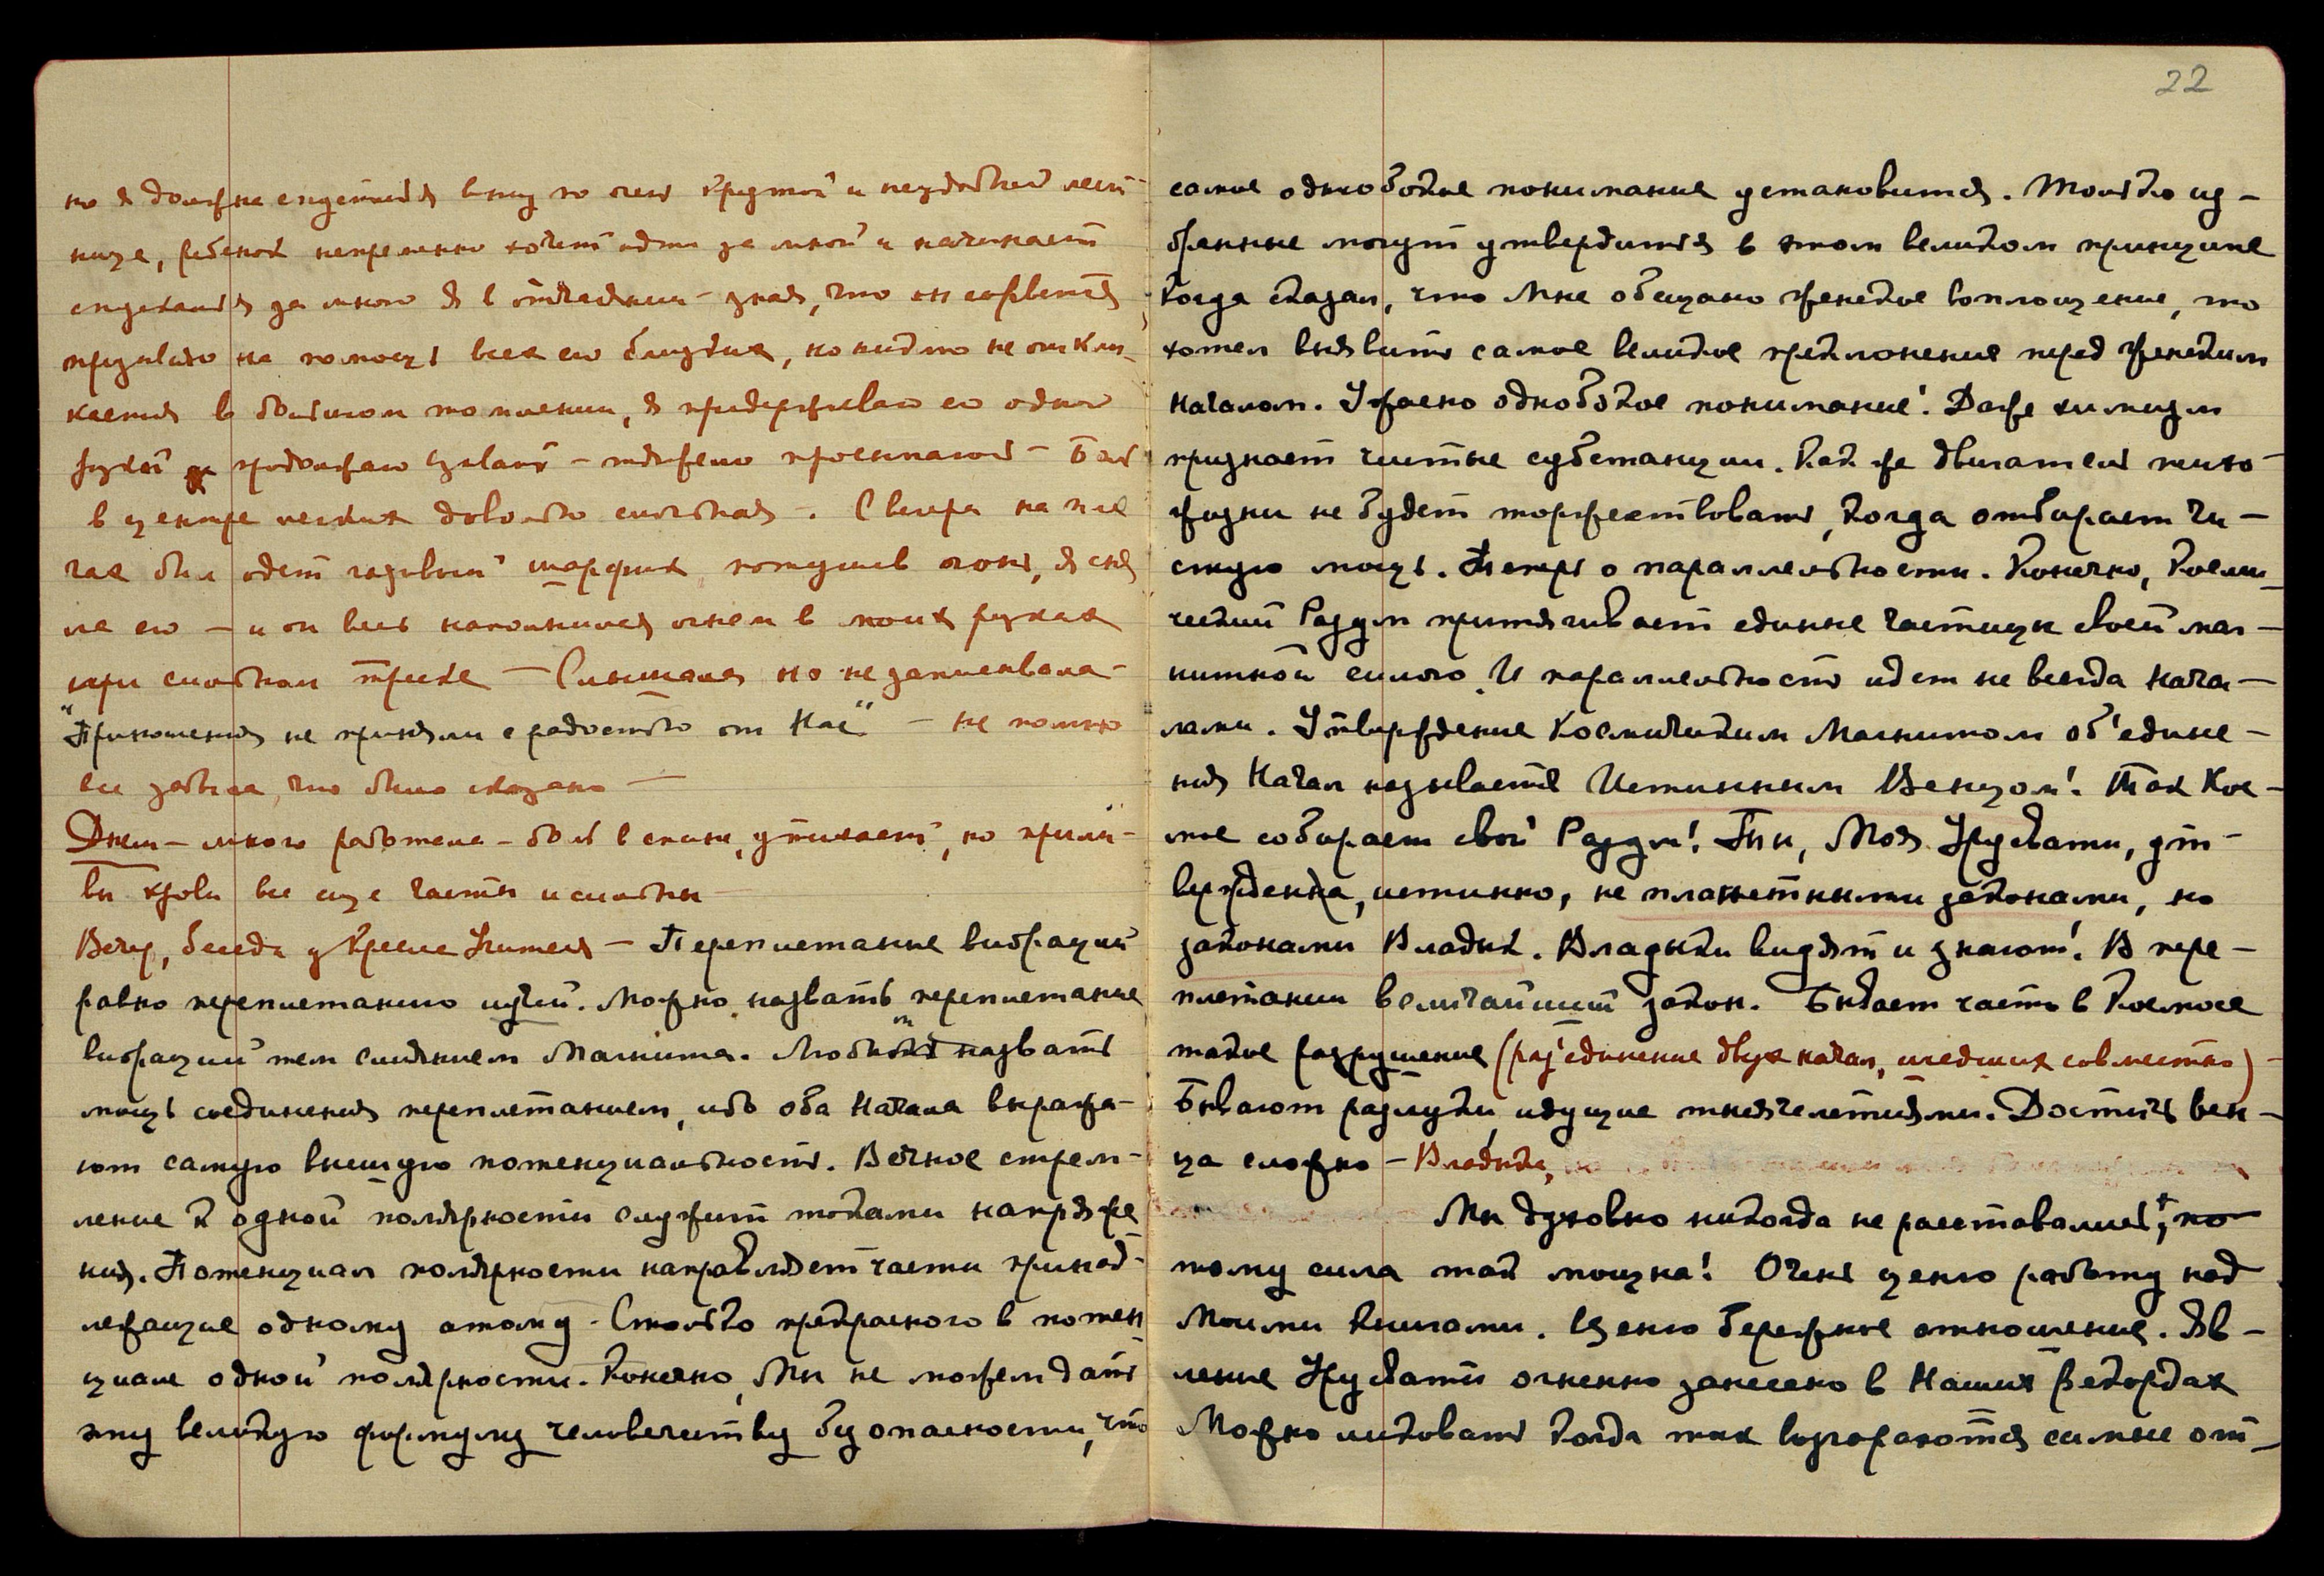 но я должна спуститься вниз по очень крутой и неудобной лест-
нице, ребенок непременно хочет идти за мной и начинает
спускаться за мною я в отчаянии – зная, что он сорвется
призываю на помощь всех его близких, но никто не откли-
кается в большом томлении, я придерживаю его одной
рукой и продолжаю взывать – тяжело просыпаюсь – Боль
в центре легких довольно сильная –. С вечера на пле
чах был одет газовый шарфик, потушив огонь, я сня
ла его – и он весь наполнился огнем в моих руках
при сильном треске – Слышала но не записывала –
"Приношения не приняли с радостью от Нас" – не помню
все забыла, что было сказано –
Днем – много работала – боль в спине, утихает, но прили-
вы крови все еще часты и сильны –
Вечер, беседа у Кресла Учителя – Переплетание вибраций
равно переплетанию лучей. Можно назвать переплетание
вибраций тем слиянием Магнита. назвать
мощь соединения переплетанием, ибо оба Начала выража-
ют самую высшую потенциальность. Вечное стрем-
ление к одной полярности служит токами напряже
ния. Потенциал полярности направляет части принад-
лежащие одному атому. Столько прекрасного в потен
циале одной полярности. Конечно, Мы не можем дать
эту великую формулу человечеству без опасности, что
22
самое однобокое понимание установится. Только из-
бранные могут утвердиться в этом великом принципе
Когда сказал, что Мне обещано женское воплощение, то
хотел выявить самое великое преклонение перед женским
Началом. Ужасно однобокое понимание! Даже химизм
признает чистые субстанции. Как же двигатель психо-
жизни не будет торжествовать, когда отбирает чи-
стую мощь. Теперь о параллельности. Конечно, Косми-
ческий Разум притягивает единые частицы своей маг-
нитной силою. И параллельность идет не всегда Нача-
лами. Утверждение Космическим Магнитом об'едине-
ния Начал называется Истинным Венцом! Так Кос-
мос собирает свой Разум! Ты, Моя Урусвати, ут-
верждена, истинно, не планетными законами, но
законами Владык. Владыки видят и знают! В пере-
плетании величайший закон. Бывает часто в Космосе
такое разрушение (раз'единение двух начал, шедших совместно) –
Бывают разлуки идущие тысячелетиями. Достичь вен-
ца сложно – Владыка,
Мы духовно никогда не расставались, по-
тому сила так мощна! Очень ценю работу над
Моими Книгами. Ценю бережное отношение. Яв-
ление Урусвати огненно занесено в Наших Рекордах
Можно ликовать когда так возгораются сильные от-